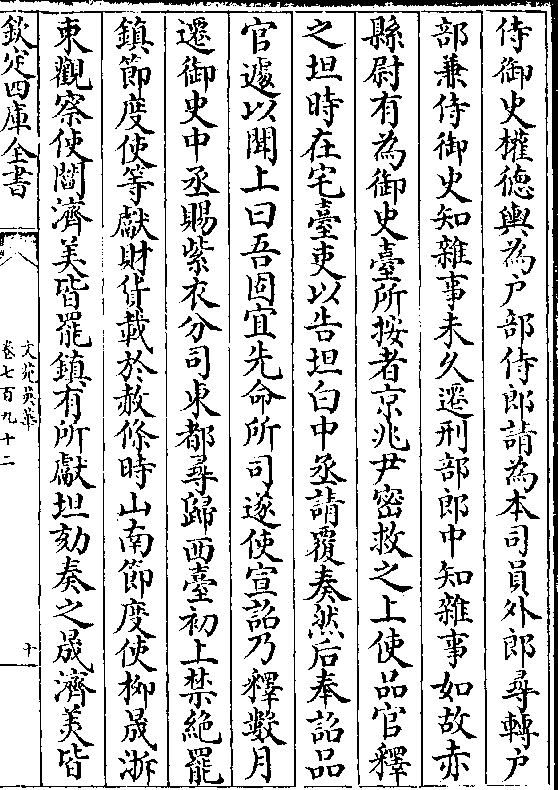 侍御史權德輿為户部侍郎請為本司員外郎尋轉户
部兼侍御史知雜事未久遷刑部郎中知雜事如故赤
縣尉有為御史臺所按者京兆尹密救之上使品官釋
之坦時在宅臺吏以告坦白中丞請覆奏然后奉詔品
官遽以聞上曰吾固宜先命所司遂使宣詔乃釋數月
遷御史中丞賜紫衣分司東都尋歸西臺初上禁絶罷
鎮節度使等獻財貨載於赦條時山南節度使柳晟浙
東觀察使閻濟美皆罷鎮有所獻坦劾奏之晟濟美皆
欽定四庫全書
文苑英華
卷七百九十二
十